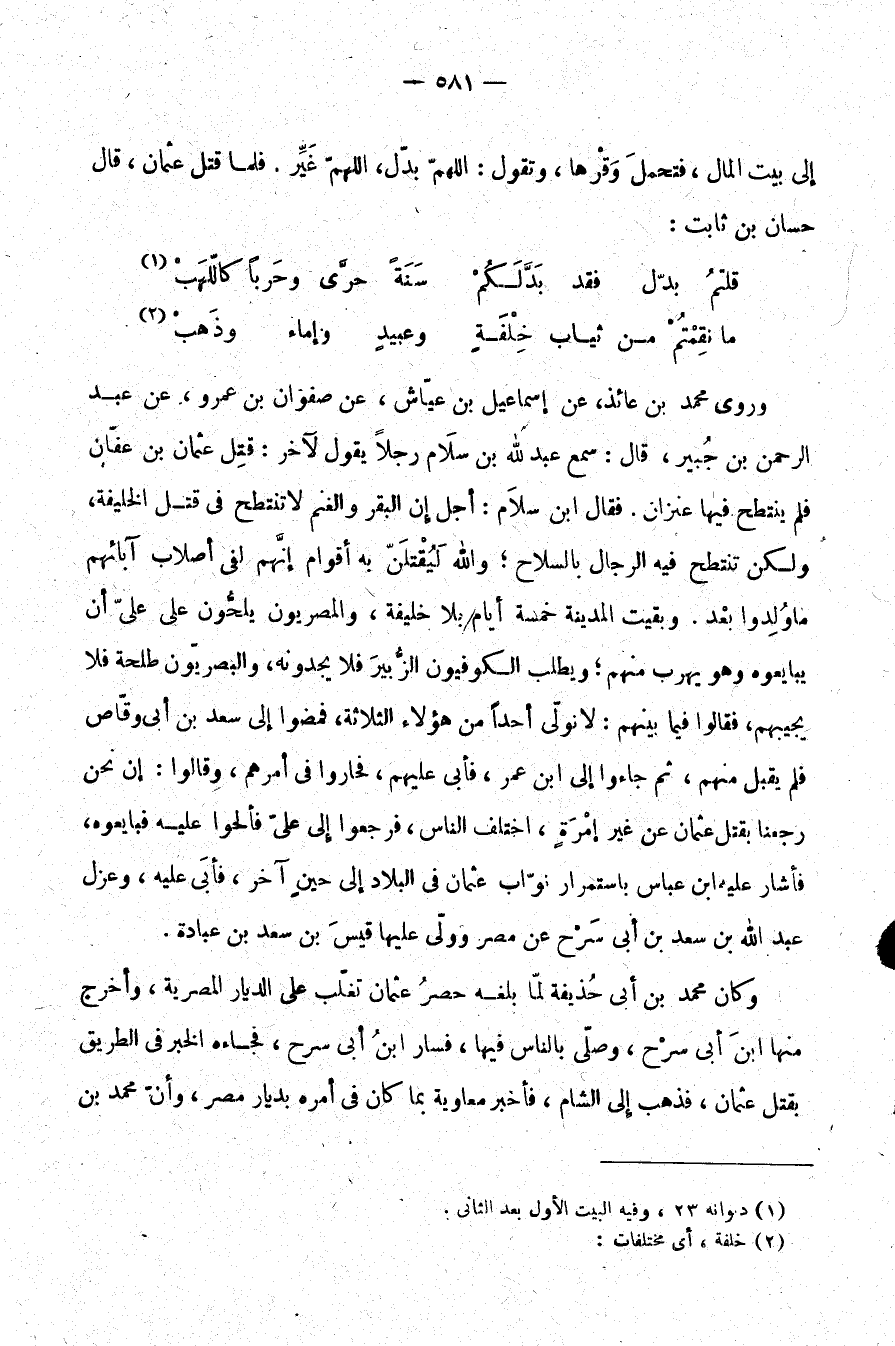 — ٥٨١ —
إلى بيت المال ، فتحملَ وَقْرها ، وتقول : اللهمّ بدّل، اللهمّ غَيِّر . فلمـا قتل عثمان ، قال
حسان بن ثابت :
قلتمُ بدّل فقد بَدَّلَـكُمْ سَنَةً حرَّى وحَرباً كاللّهَبْ (١)
ما نقِمْتُمْ مـن ثيـاب خِلْفَـةٍ وعبيدٍ وإماء وذَهبْ (٢)
وروى محمد بن عائذ، عن إسماعيل بن عيّاش ، عن صفوان بن عمرو ، عن عبـد
الرحمن بن جُبير ، قال : سمع عبد لله بن سلَام رجلاً يقول لآخر : قتِل عثمان بن عفّان
فلم ينتطح فيها عنزان . فقال ابن سلاَم : أجل إن البقر والغنم لاتنتطح فى قتـل الخليفة،
ولـكن تنتطح فيه الرجال بالسلاح ؛ والله لَيُقْتلَنّ به أقوام إنَّهم لفى أصلاب آبائهم
ماوُلِدوا بعْد . وبقيت المدينة خمسة أيام بلا خليفة ، والمصريون يلحُّون على علىّ أن
يبايعوه وهو يهرب منهم ؛ ويطلب الـكوفيون الزُّبيرَ فلا يجدونه، والبصريّون طلحة فلا
يجيبهم، فقالوا فيما بينهم : لانولّى أحداً من هؤلاء الثلاثة، فمضوا إلى سعد بن أبى وقّاص
فلم يقبل منهم ، ثم جاءوا إلى ابن عمر ، فأبى عليهم ، فحاروا فى أمرهم ، وقالوا : إن نحن
رجعنا بقتل عثمان عن غير إمْرَةٍ ، اختلف الناس ، فرجعوا إلى علىّ فألحوا عليـه فبايعوه،
فأشار عليه ابن عباس باستمرار نوّاب عثمان فى البلاد إلى حينٍ آخر ، فأبَى عليه ، وعزل
عبد الله بن سعد بن أبى سَرْح عن مصر وولّى عليها قيسَ بن سعد بن عبادة .
وكان محمد بن أبى حُذيفة لمّا بلغـه حصرُ عثمان تغلّب على الديار المصرية ، وأخرج
منها ابنَ أبى سرْح ، وصلّى بالناس فيها ، فسار ابنُ أبى سرح ، فجـاءه الخبر فى الطريق
بقتل عثمان ، فذهب إلى الشام ، فأخبر معاوية بما كان فى أمره بديار مصر ، وأنّ محمد بن
(١) ديوانه ٢٣ ، وفيه البيت الأول بعد الثانى .
(٢) خلفة ، أى مختلفات :